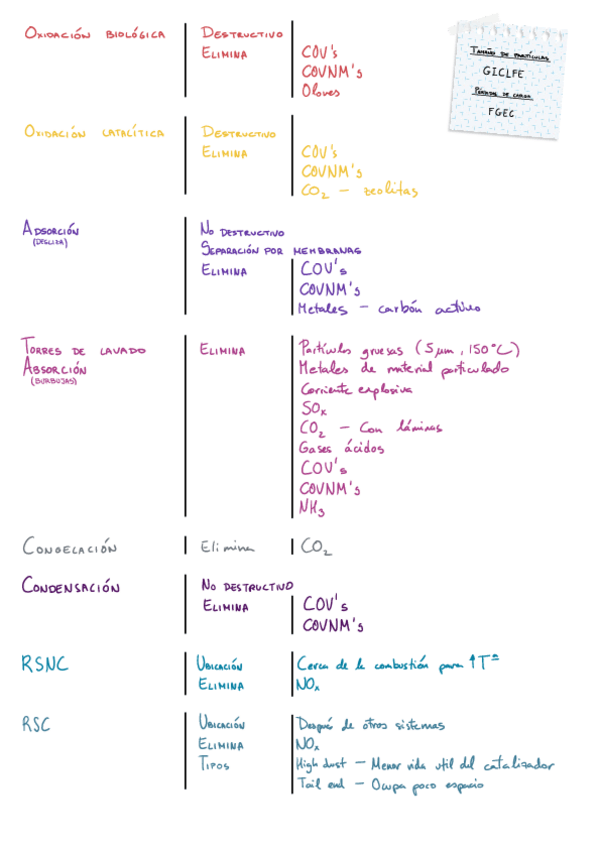 OXIDACIÓN BIOLÓGICA DESTRUCTIVO
ELIMINA COV's
COVNM's
Olores
TAMAÑO DE PARTÍCULAS
GICLFE
PÉRDIDAS DE CARGA
FGEC
OXIDACIÓN CATALÍTICA DESTRUCTIVO
ELIMINA COV's
COVNM's
CO₂ – zeolitas
ADSORCIÓN NO DESTRUCTIVO
(DESLIZA) SEPARACIÓN POR MEMBRANAS
ELIMINA COV's
COVNM's
Metales – carbón activo
TORRES DE LAVADO ELIMINA Partículas gruesas (5 µm, 150°C)
ABSORCIÓN Metales de material particulado
(BURBUJAS) Corriente explosiva
SOₓ
CO₂ – Con láminas
Gases ácidos
COV's
COVNM's
NH₃
CONGELACIÓN Elimina CO₂
CONDENSACIÓN NO DESTRUCTIVO
ELIMINA COV's
COVNM's
RSNC UBICACIÓN Cerca de la combustión para ↑Tª
ELIMINA NOₓ
RSC UBICACIÓN Después de otros sistemas
ELIMINA NOₓ
TIPOS High dust – Menor vida util del catalizador
Tail end – Ocupa poco espacio